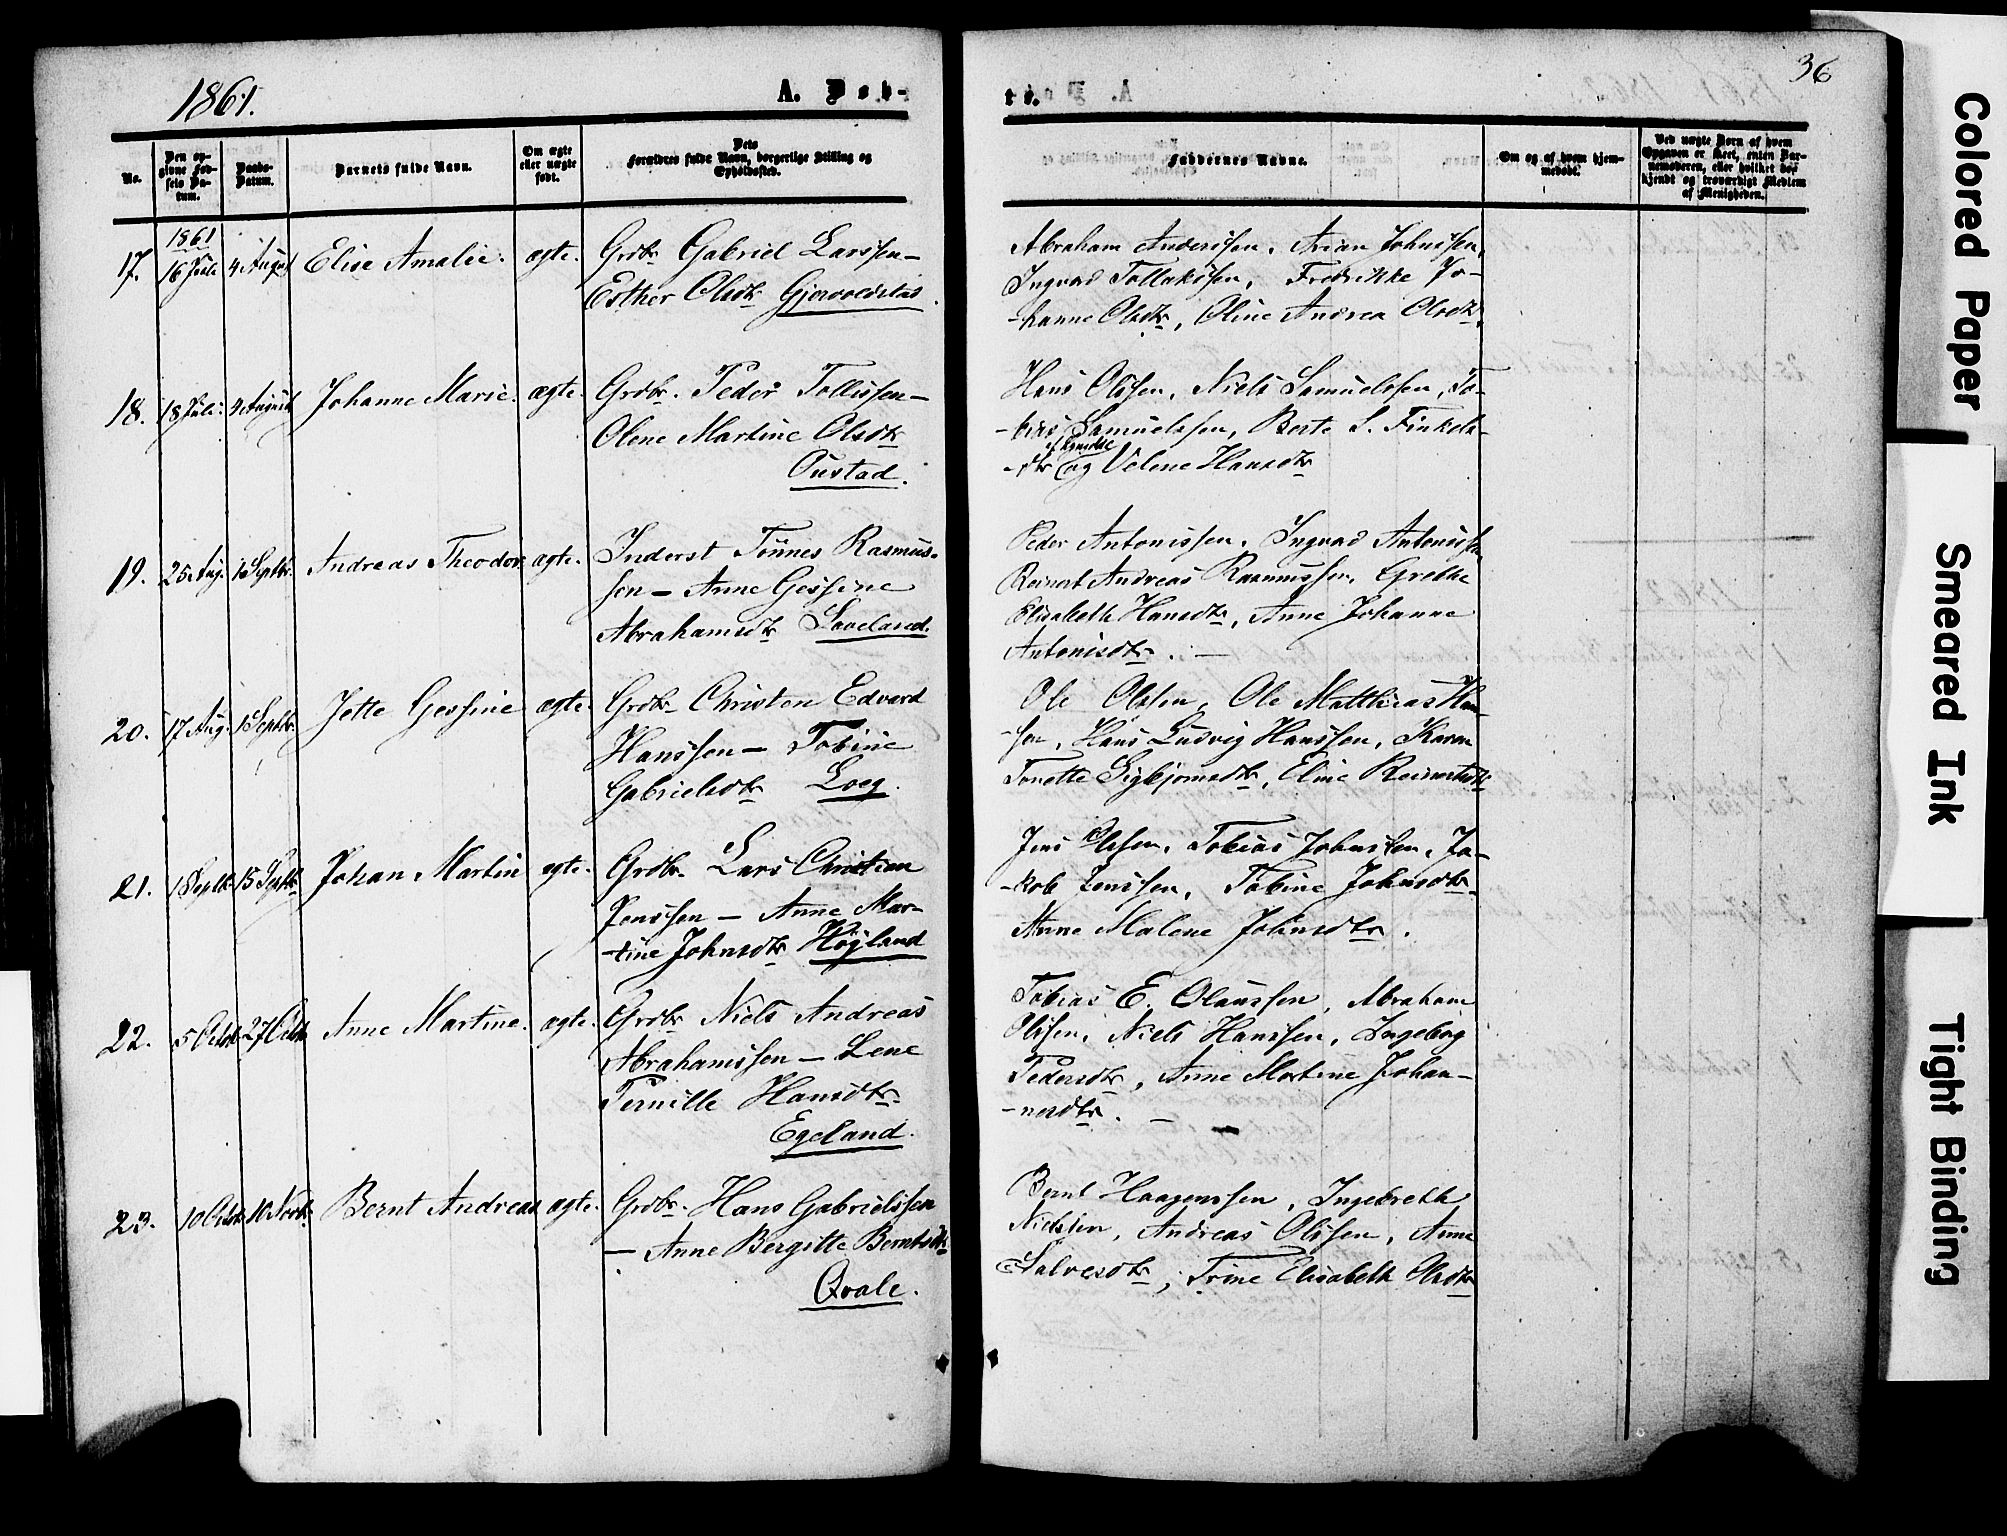 1861.
A. Døb-
te.
36
No.
Den op-
givne Fød-
sels Da-
tum.
Daabs-
Datum.
Barnets fulde Navn.
Om ægte
eller uægte
født.
Dets
Forældres fulde Navn, borgerlige Stilling og
Opholdssted.
Faddernes Navne.
Om og af hvem hjem-
medøbt.
Ved uægte Born af hvem
Opgaven er skeet, enten Bar-
nemoderen, eller hvilket bos
kjendt og troværdigt Medlem
af Menigheden.
1861
17. 16 Juli 4 August Elise Amalie. ægte. Grdbr Gabriel Larssen –
Esther Olsdtr Gjervoldstad.
Abraham Anderssen, Arian Johnssen,
Ingvad Tollakssen, Fredrikke Jo-
-hanne Olsdtr, Oline Andrea Olsdtr.
18. 18 Juli. 4 August Johanne Marie. ægte. Grdbr. Peder Tollissen –
Olene Martine Olsdtr
Oustad.
Hans Olssen, Niels Samuelssen, To-
-bias Samuelssen, Berte S. Finkels-
-dtr og Velene Hansdtr
19. 25 Aug. 1 Septbr. Andreas Theodor ægte. Inderst Tönnes Rasmus-
sen – Anne Gessine
Abrahamsdtr Laveland.
Peder Antonissen, Ingvad Antonissen
Reinert Andreas Rasmussen, Grethe
Elisabeth Hansdtr, Anne Johanne
Antonisdtr. –
20. 17 Aug. 1 Septbr. Jette Gessine ægte. Grdbr Christen Edvard
Hanssen – Tobine
Gabrielsdtr Loeg.
Ole Olssen, Ole Matthias Han-
-sen, Hans Ludvig Hanssen, Karen
Tonette Sigbjørnsdtr, Eline Reinertsdtr
21. 1 Septbr 15 Septbr Johan Martin ægte. Grdbr Lars Christian
Jenssen – Anne Mar-
-tine Johnsdtr Högland
Jens Olssen, Tobias Johnssen, Ja-
-kob Jenssen, Tobine Johnsdtr
Anne Malene Johnsdtr.
22. 5 Octbr 27 Octbr Anne Martine. ægte. Grdbr Niels Andreas
Abrahamssen – Lene
Pernille Hansdtr
Egeland.
Tobias E. Olaussen, Abraham
Olssen, Niels Hanssen, Ingeborg
Pedersdtr, Anne Martine Johan-
-nesdtr. –
23. 10 Octbr 10 Novbr. Bernt Andreas ægte. Grdbr. Hans Gabrielssen
– Anne Bergitte Berntsdtr
Qvale.
Bernt Haagenssen, Ingebreth
Nielssen, Andreas Olssen, Anne
Salvesdtr, Trine Elisabeth Olsdtr
Colored Paper
Smeared Ink
Tight Binding